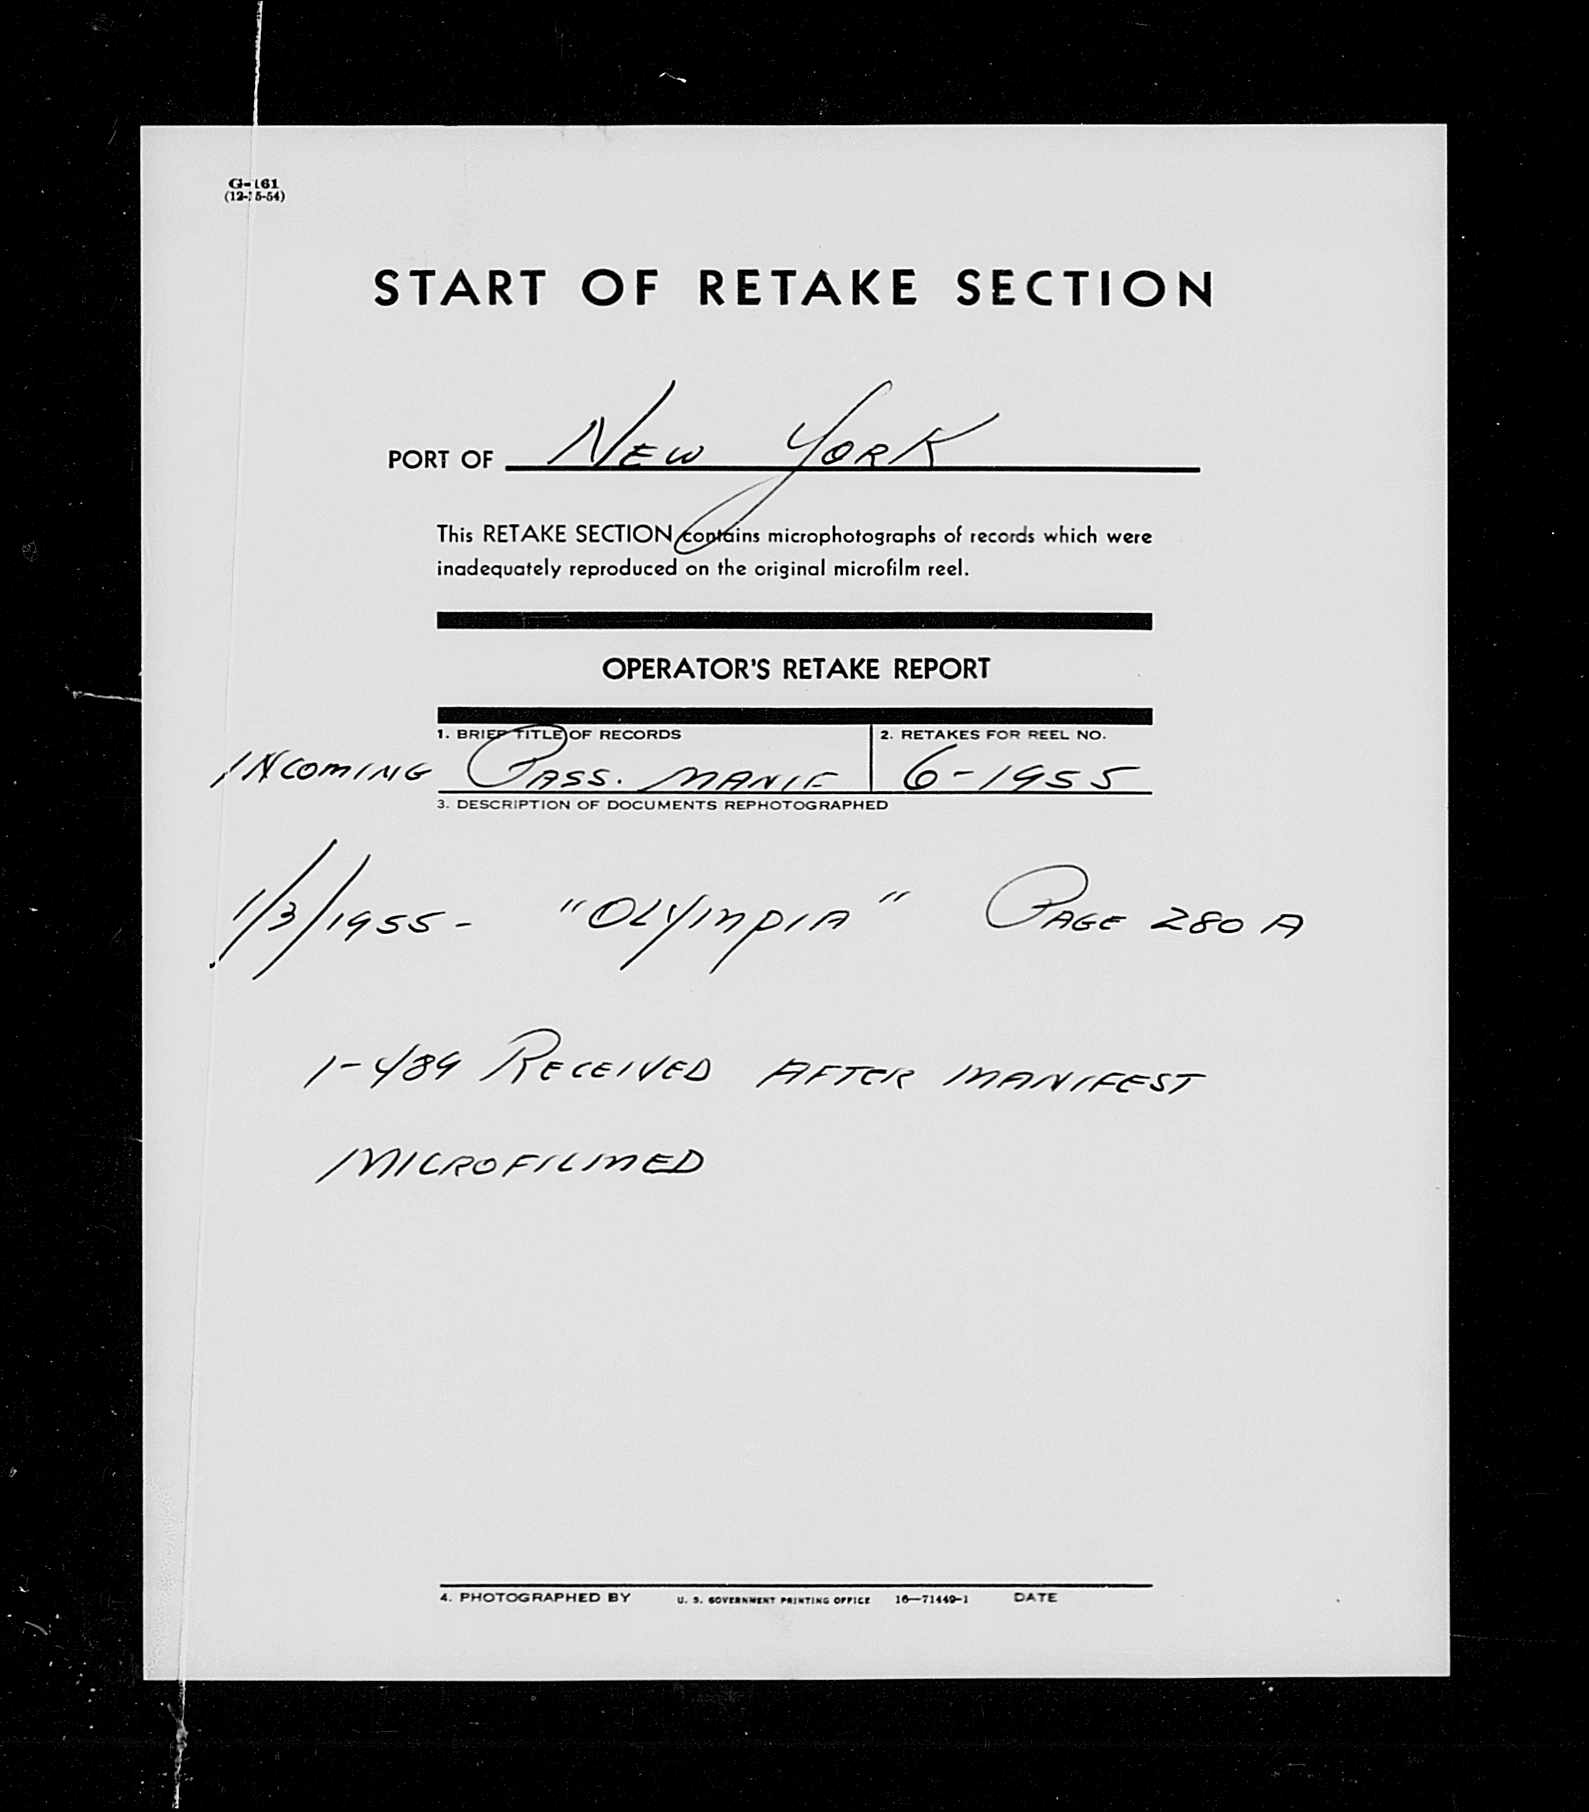 G-161
(12-15-54)
START OF RETAKE SECTION
PORT OF NEW YORK
This RETAKE SECTION contains microphotographs of records which were
inadequately reproduced on the original microfilm reel.
OPERATOR'S RETAKE REPORT
1. BRIEF TITLE OF RECORDS 2. RETAKES FOR REEL NO.
INCOMING PASS. MANIF 6-1955
3. DESCRIPTION OF DOCUMENTS REPHOTOGRAPHED
1/3/1955- "OLYMPIA" PAGE 280 A
1-489 RECEIVED AFTER MANIFEST
MICROFILMED
4. PHOTOGRAPHED BY U. S. GOVERNMENT PRINTING OFFICE 16—71449-1 DATE